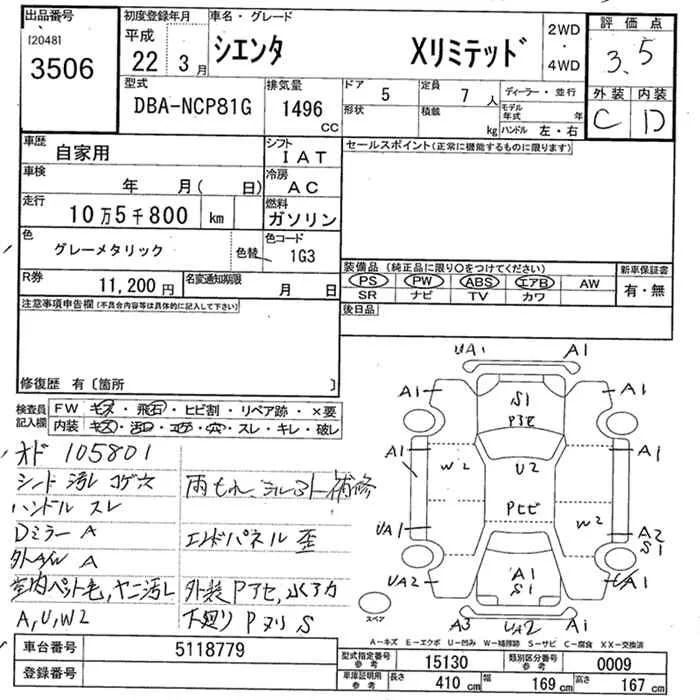 出品番号
120481
3506
初度登録年月
平成
22 3月
車名・グレード
シエンタ Xリミテッド
2WD
・
4WD
評価点
3.5
外装 内装
C D
型式
DBA-NCP81G
排気量
1496
CC
ドア
5
形状
定員
7人
積載
kg
ディーラー・並行
モデル年式 年
ハンドル 左・右
車歴
自家用
シフト
IAT
セールスポイント(正常に機能するものに限ります)
車検
年 月( 日)
冷房
AC
走行
10万5千800 km
燃料
ガソリン
色
グレーメタリック
色替
色コード
1G3
R券
11,200円
名変通知期限
月 日
装備品 (純正品に限り○をつけてください)
PS PW ABS エアB AW
SR ナビ TV カワ
新車保証書
有・無
後日品
注意事項申告欄(不具合内容等は具体的に記入して下さい)
修復歴 有〔箇所 〕
検査員記入欄
FW キズ・飛石・ヒビ割・リペア跡・×要
内装 キズ・汚れ・コゲ・穴・スレ・キレ・破レ
オド 105801
シート 汚レ コゲ穴
ハンドル スレ
Dミラー A
外AW A
室内ペット毛,ヤニ汚レ
A,U,W2
雨もれ、シルフト補修
エンドパネル 歪
外装Pアセ,
下廻り Pヌリ S
UA1 A1
A1 S1 A1
Pアセ
A1 A1
W2 U2
Pヒビ
UA1 W2 A2
S1
UA2 A1 UA1
S1
A3 UA2 A1
スペア
A-キズ E-エクボ U-凹み W-補修跡 S-サビ C-腐食 XX-交換済
車台番号
5118779
登録番号
型式指定番号
参考
15130
類別区分番号
参考
0009
車庫証明用
参考
長さ
410 cm
幅
169 cm
高さ
167 cm